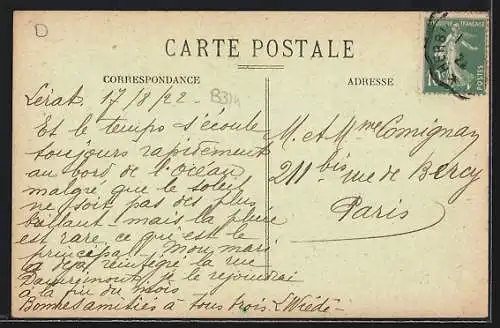 D
CARTE POSTALE
CORRESPONDANCE
ADRESSE
B314
Lérat 17/8/22.
Et le temps s'écoule
toujours rapidement
au bord de l'Océan
malgré que le soleil
ne soit pas des plus
brillant mais la pluie
est rare ce qui est le
principal. Mon mari
a déjà réintégré la rue
je le rejoindrai
à la fin du mois
Bonnes amitiés à tous trois L Wiédé
M. et Mme Comignan
211 bis rue de Bercy
Paris
POSTES